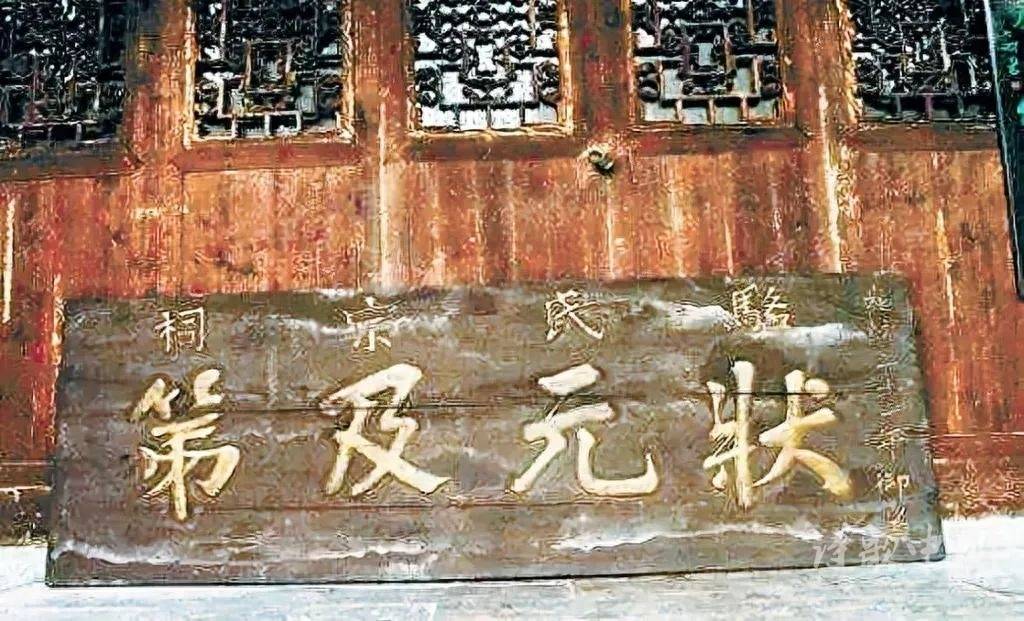 駱氏宗祠
狀元及第
御